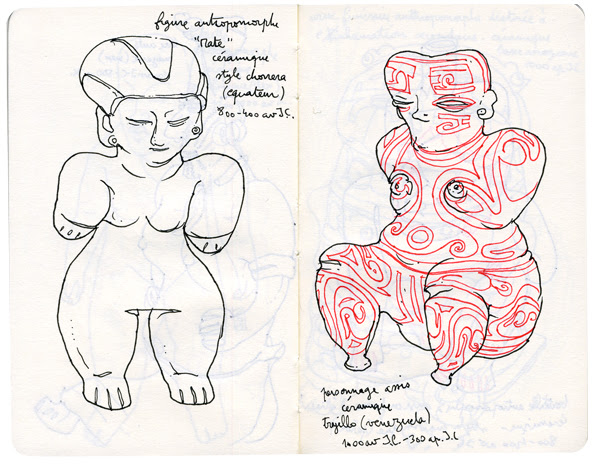 figure antropomorphe
"Mate"
céramique
style chorrera
(equateur)
800-400 av J.C.
personnage assis
céramique
trujillo (venezuela)
1000 av J.C. - 300 ap. J.C